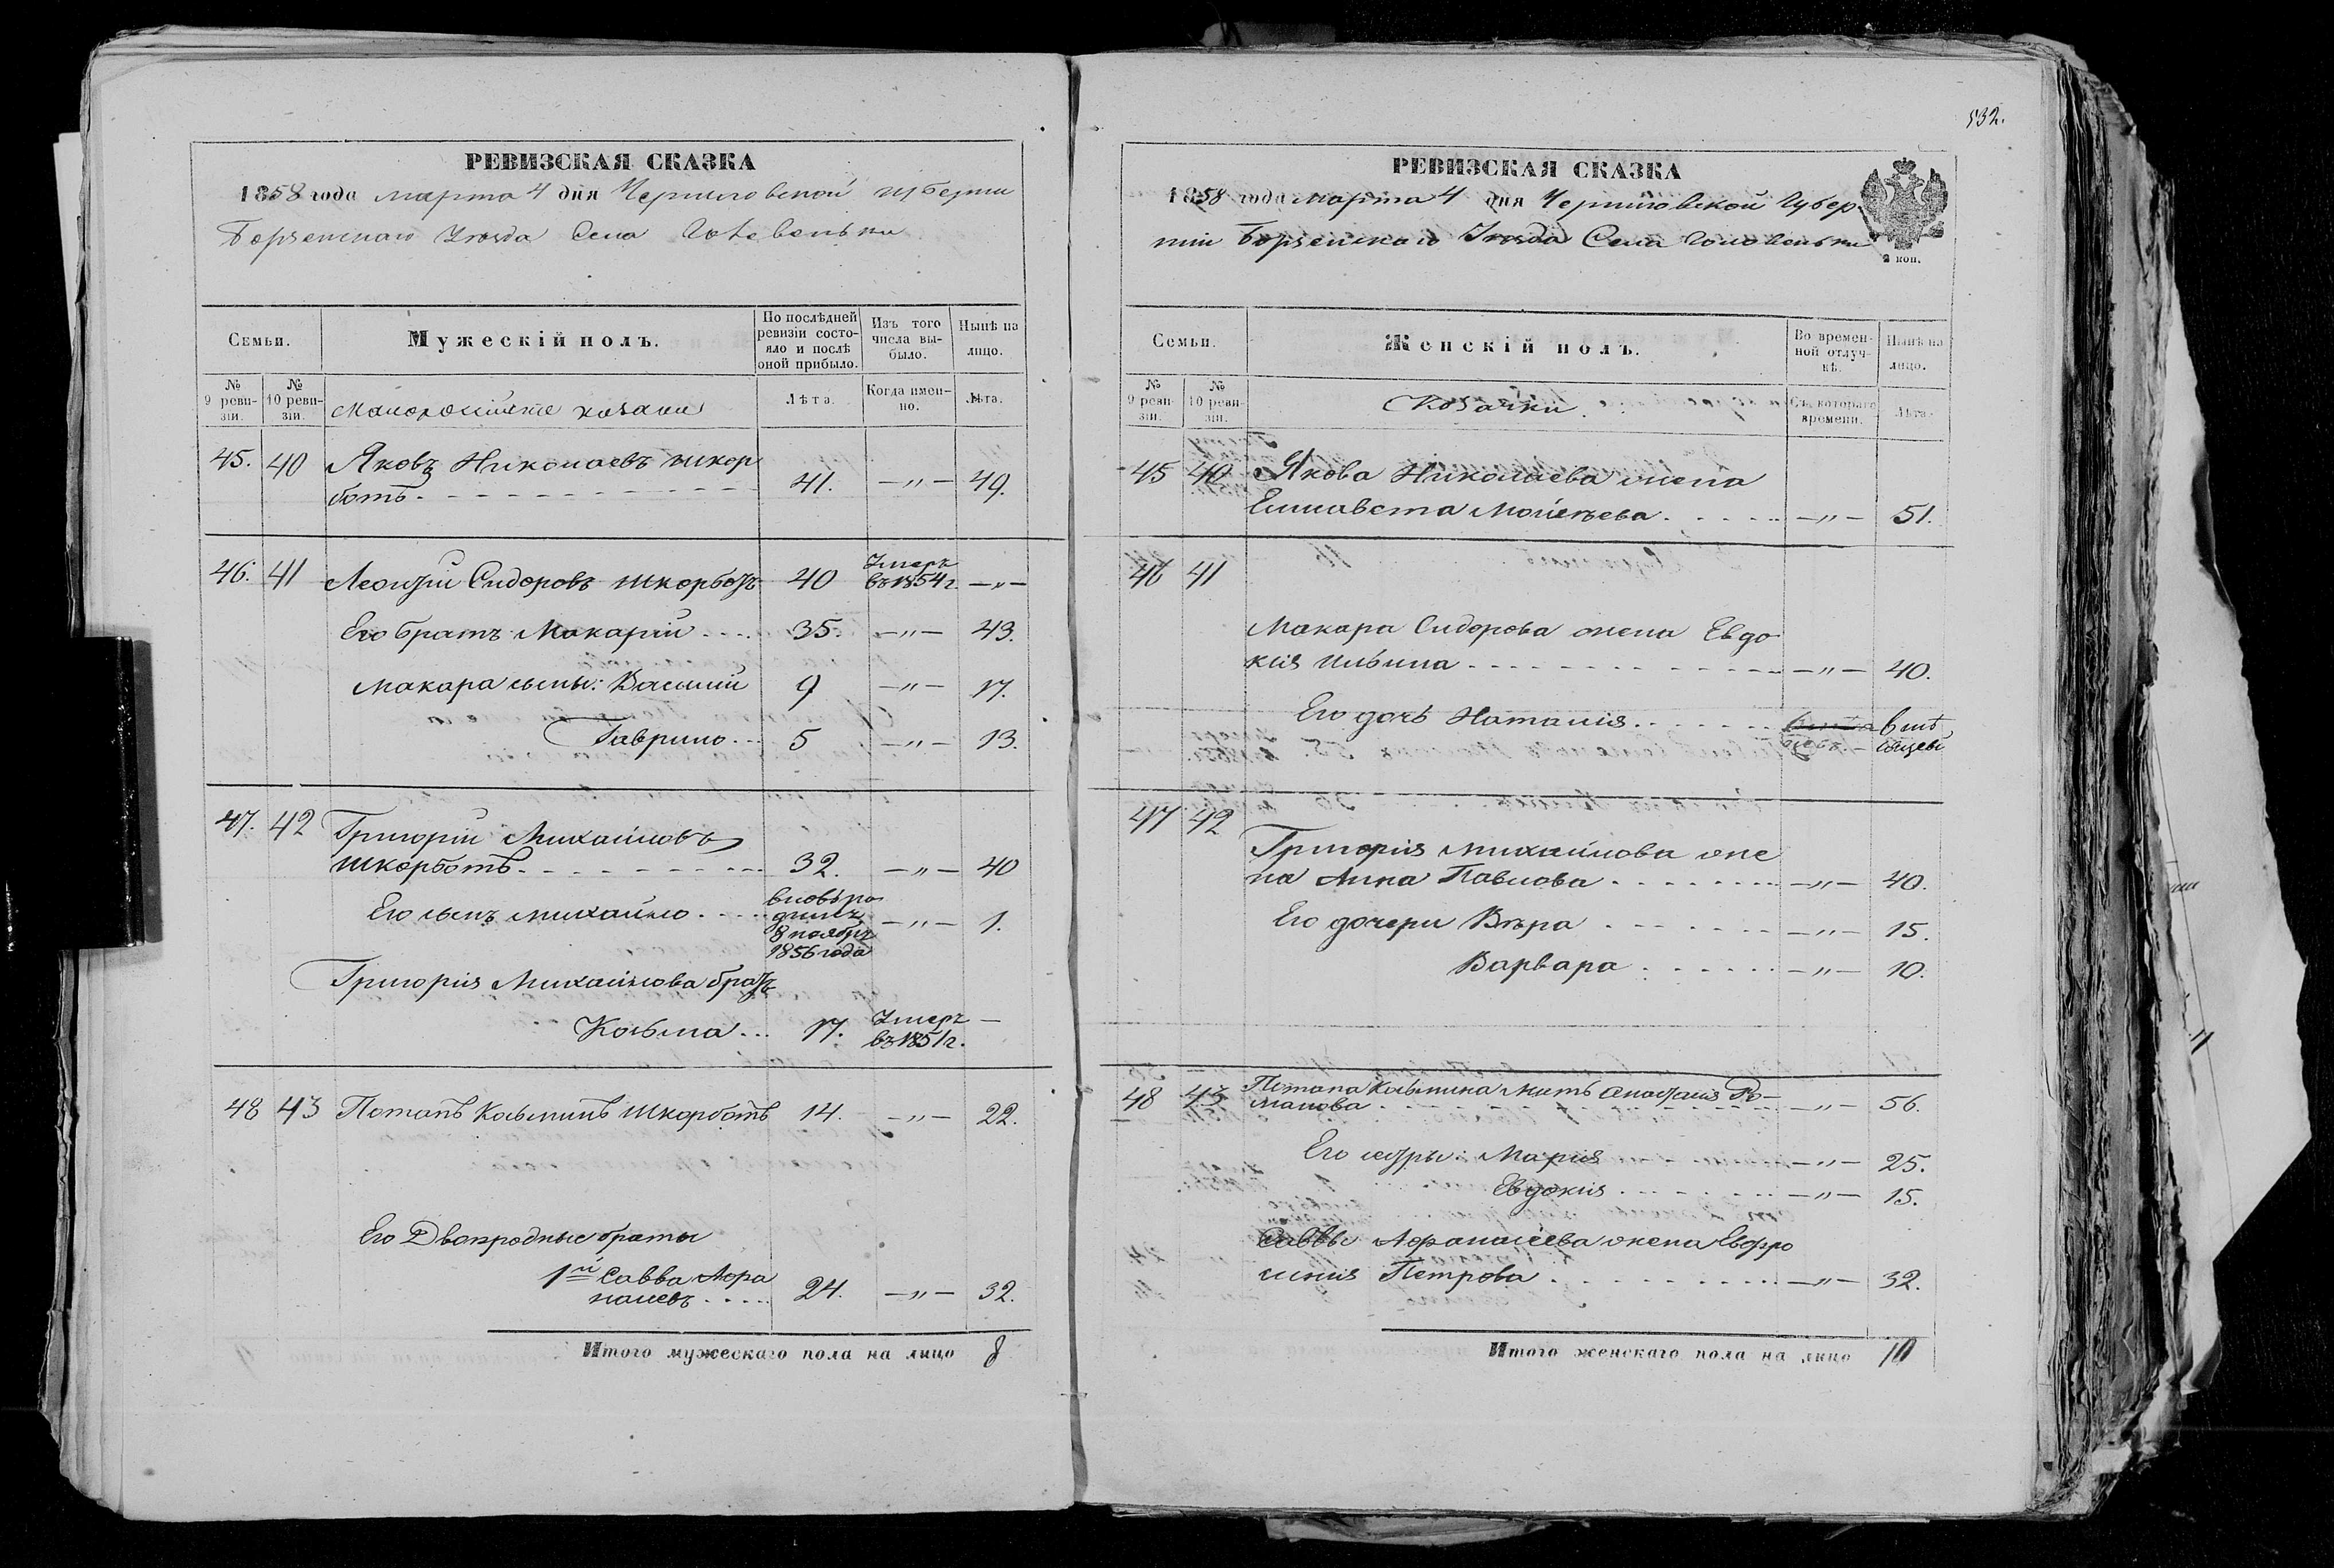 РЕВИЗСКАЯ СКАЗКА
1858 года марта 4 дня Черниговской губернии
Борзенскаго Уезда Села Головеньки
Семьи.
Мужескій полъ.
По послѣдней ревизіи состояло и послѣ оной прибыло.
Изъ того числа выбыло.
Нынѣ на лицо.
№ 9 ревизіи.
№ 10 ревизіи.
Малоросійскіе козаки
Лѣта.
Когда именно.
Лѣта.
45. 40 Яковъ Николаевъ шкор
ботъ 41. —"— 49.
46. 41 Леонтій Сидоровъ шкорботъ 40 Умеръ въ 1854 г. —"—
Его братъ Макарій 35. —"— 43.
Макара сыны: Василий 9 —"— 17.
Гаврило 5 —"— 13.
47. 42 Григорій Михайловъ
шкорботъ 32. —"— 40
Его сынъ михайло вновь родился 8 ноября 1856 года —"— 1.
Григорія Михайлова братъ
Козьма 17. Умеръ въ 1851 г. —
48 43 Потапъ Козьминъ Шкорботъ 14. —"— 22.
Его Двоюродные браты
1й Савва Афа
насиевъ 24. —"— 32.
Итого мужескаго пола на лицо 8
532.
РЕВИЗСКАЯ СКАЗКА
1858 года марта 4 дня Черниговской Губер
ніи Борзенскаго Уезда Села Головеньки
2 коп.
Семьи.
Женскій полъ.
Во временной отлучкѣ.
Нынѣ на лицо.
№ 9 ревизіи.
№ 10 ревизіи.
Козачки.
Съ котораго времени.
Лѣта.
45 40 Якова Николаева жена
Елисавета Мойсѣева —"— 51.
46 41
Макара Сидорова жена Евдо
кія Ильина —"— 40.
Его дочь Наталия 6 мѣсяцевъ
47 42
Григорія михайлова же
на Анна Павлова —"— 40.
Его дочери Вѣра —"— 15.
Варвара —"— 10.
48 43 Потапа Козьмина мать Анастасия Ро-
манова —"— 56.
Его сестры: Мария —"— 25.
Евдокия —"— 15.
Саввы Афанасиева жена Евфро
синия Петрова —"— 32.
Итого женскаго пола на лицо 10